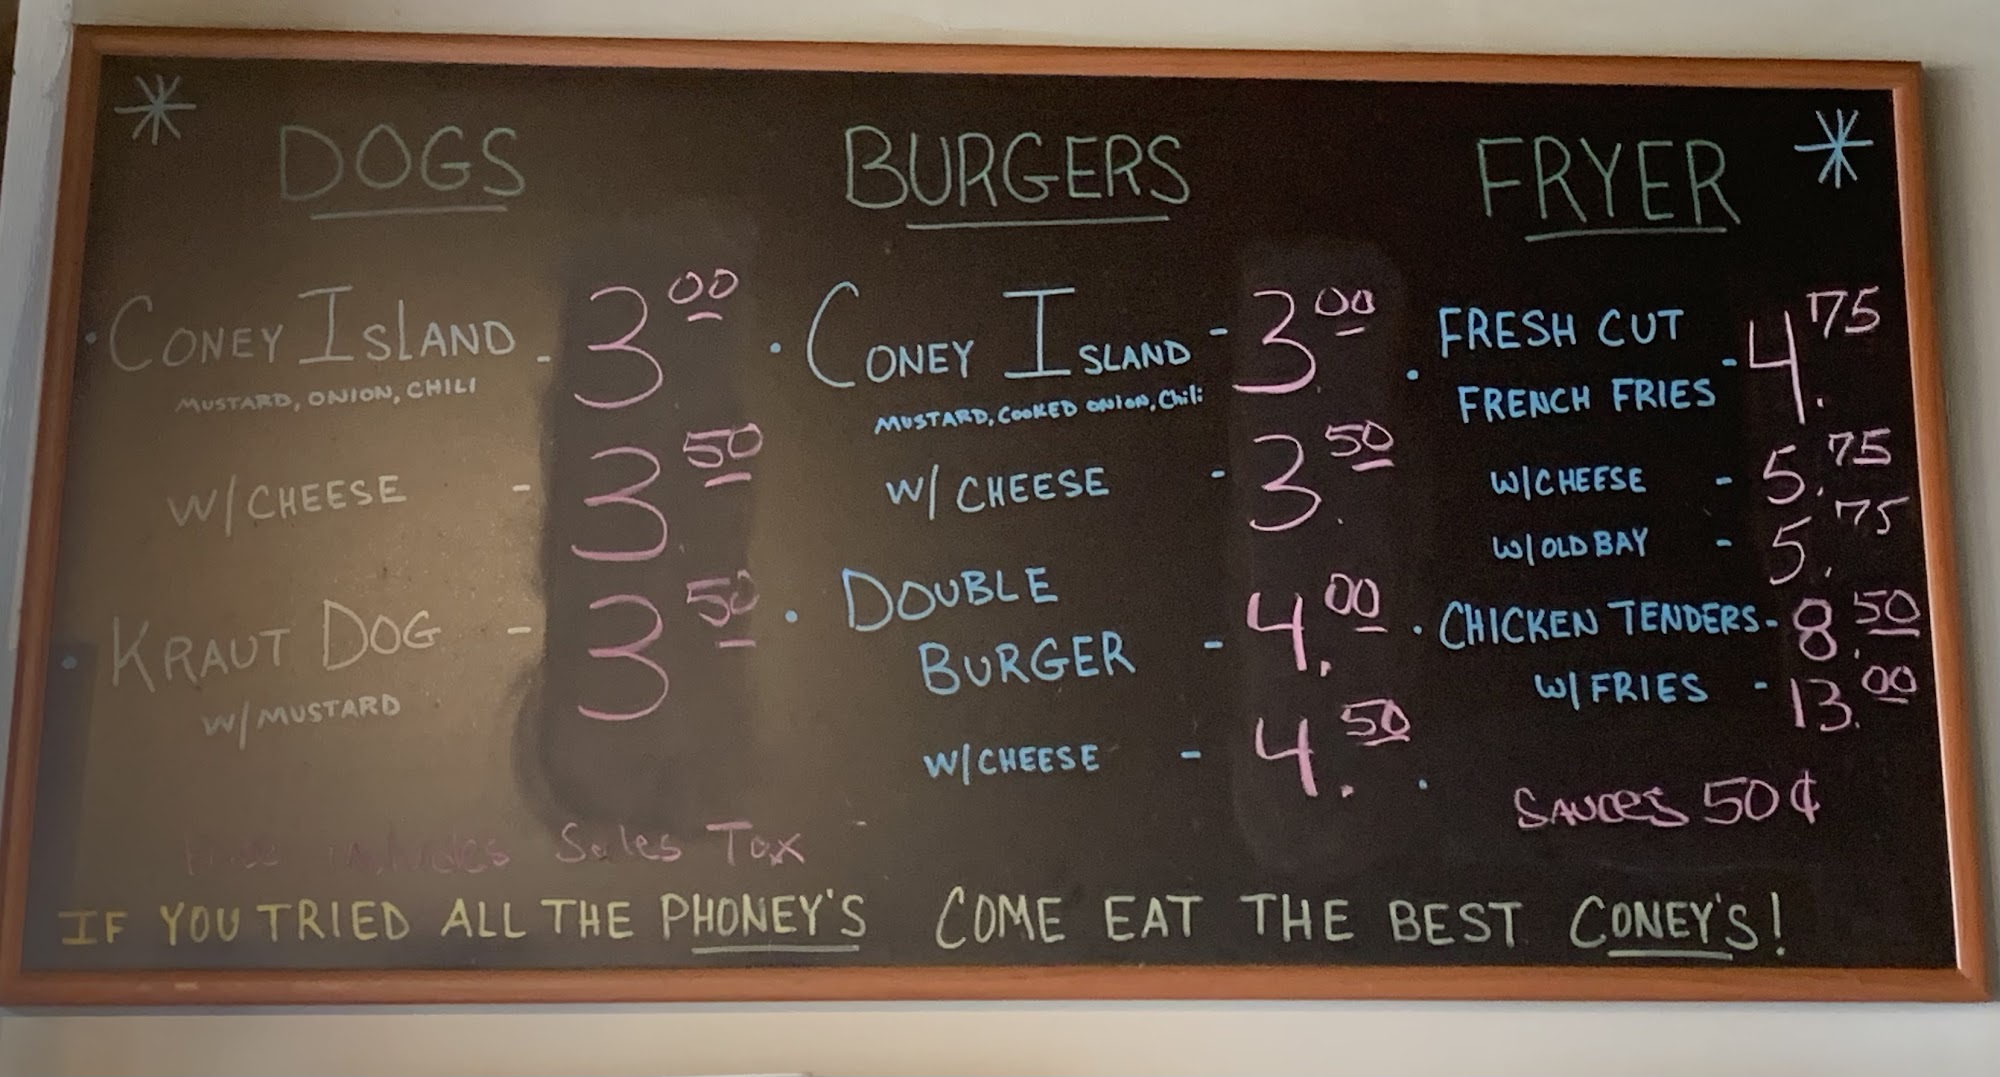 DOGS
CONEY ISLAND - 3.00
MUSTARD, ONION, CHILI
W/ CHEESE - 3.50
KRAUT DOG - 3.50
W/ MUSTARD
BURGERS
CONEY ISLAND - 3.00
MUSTARD, COOKED ONION, Chili
W/ CHEESE - 3.50
DOUBLE
BURGER - 4.00
W/CHEESE - 4.50
FRYER
FRESH CUT
FRENCH FRIES - 4.75
W/CHEESE - 5.75
W/OLD BAY - 5.75
CHICKEN TENDERS - 8.50
W/ FRIES - 13.00
SAUCES 50¢
Price includes Sales Tax
IF YOU TRIED ALL THE PHONEY'S COME EAT THE BEST CONEY'S!